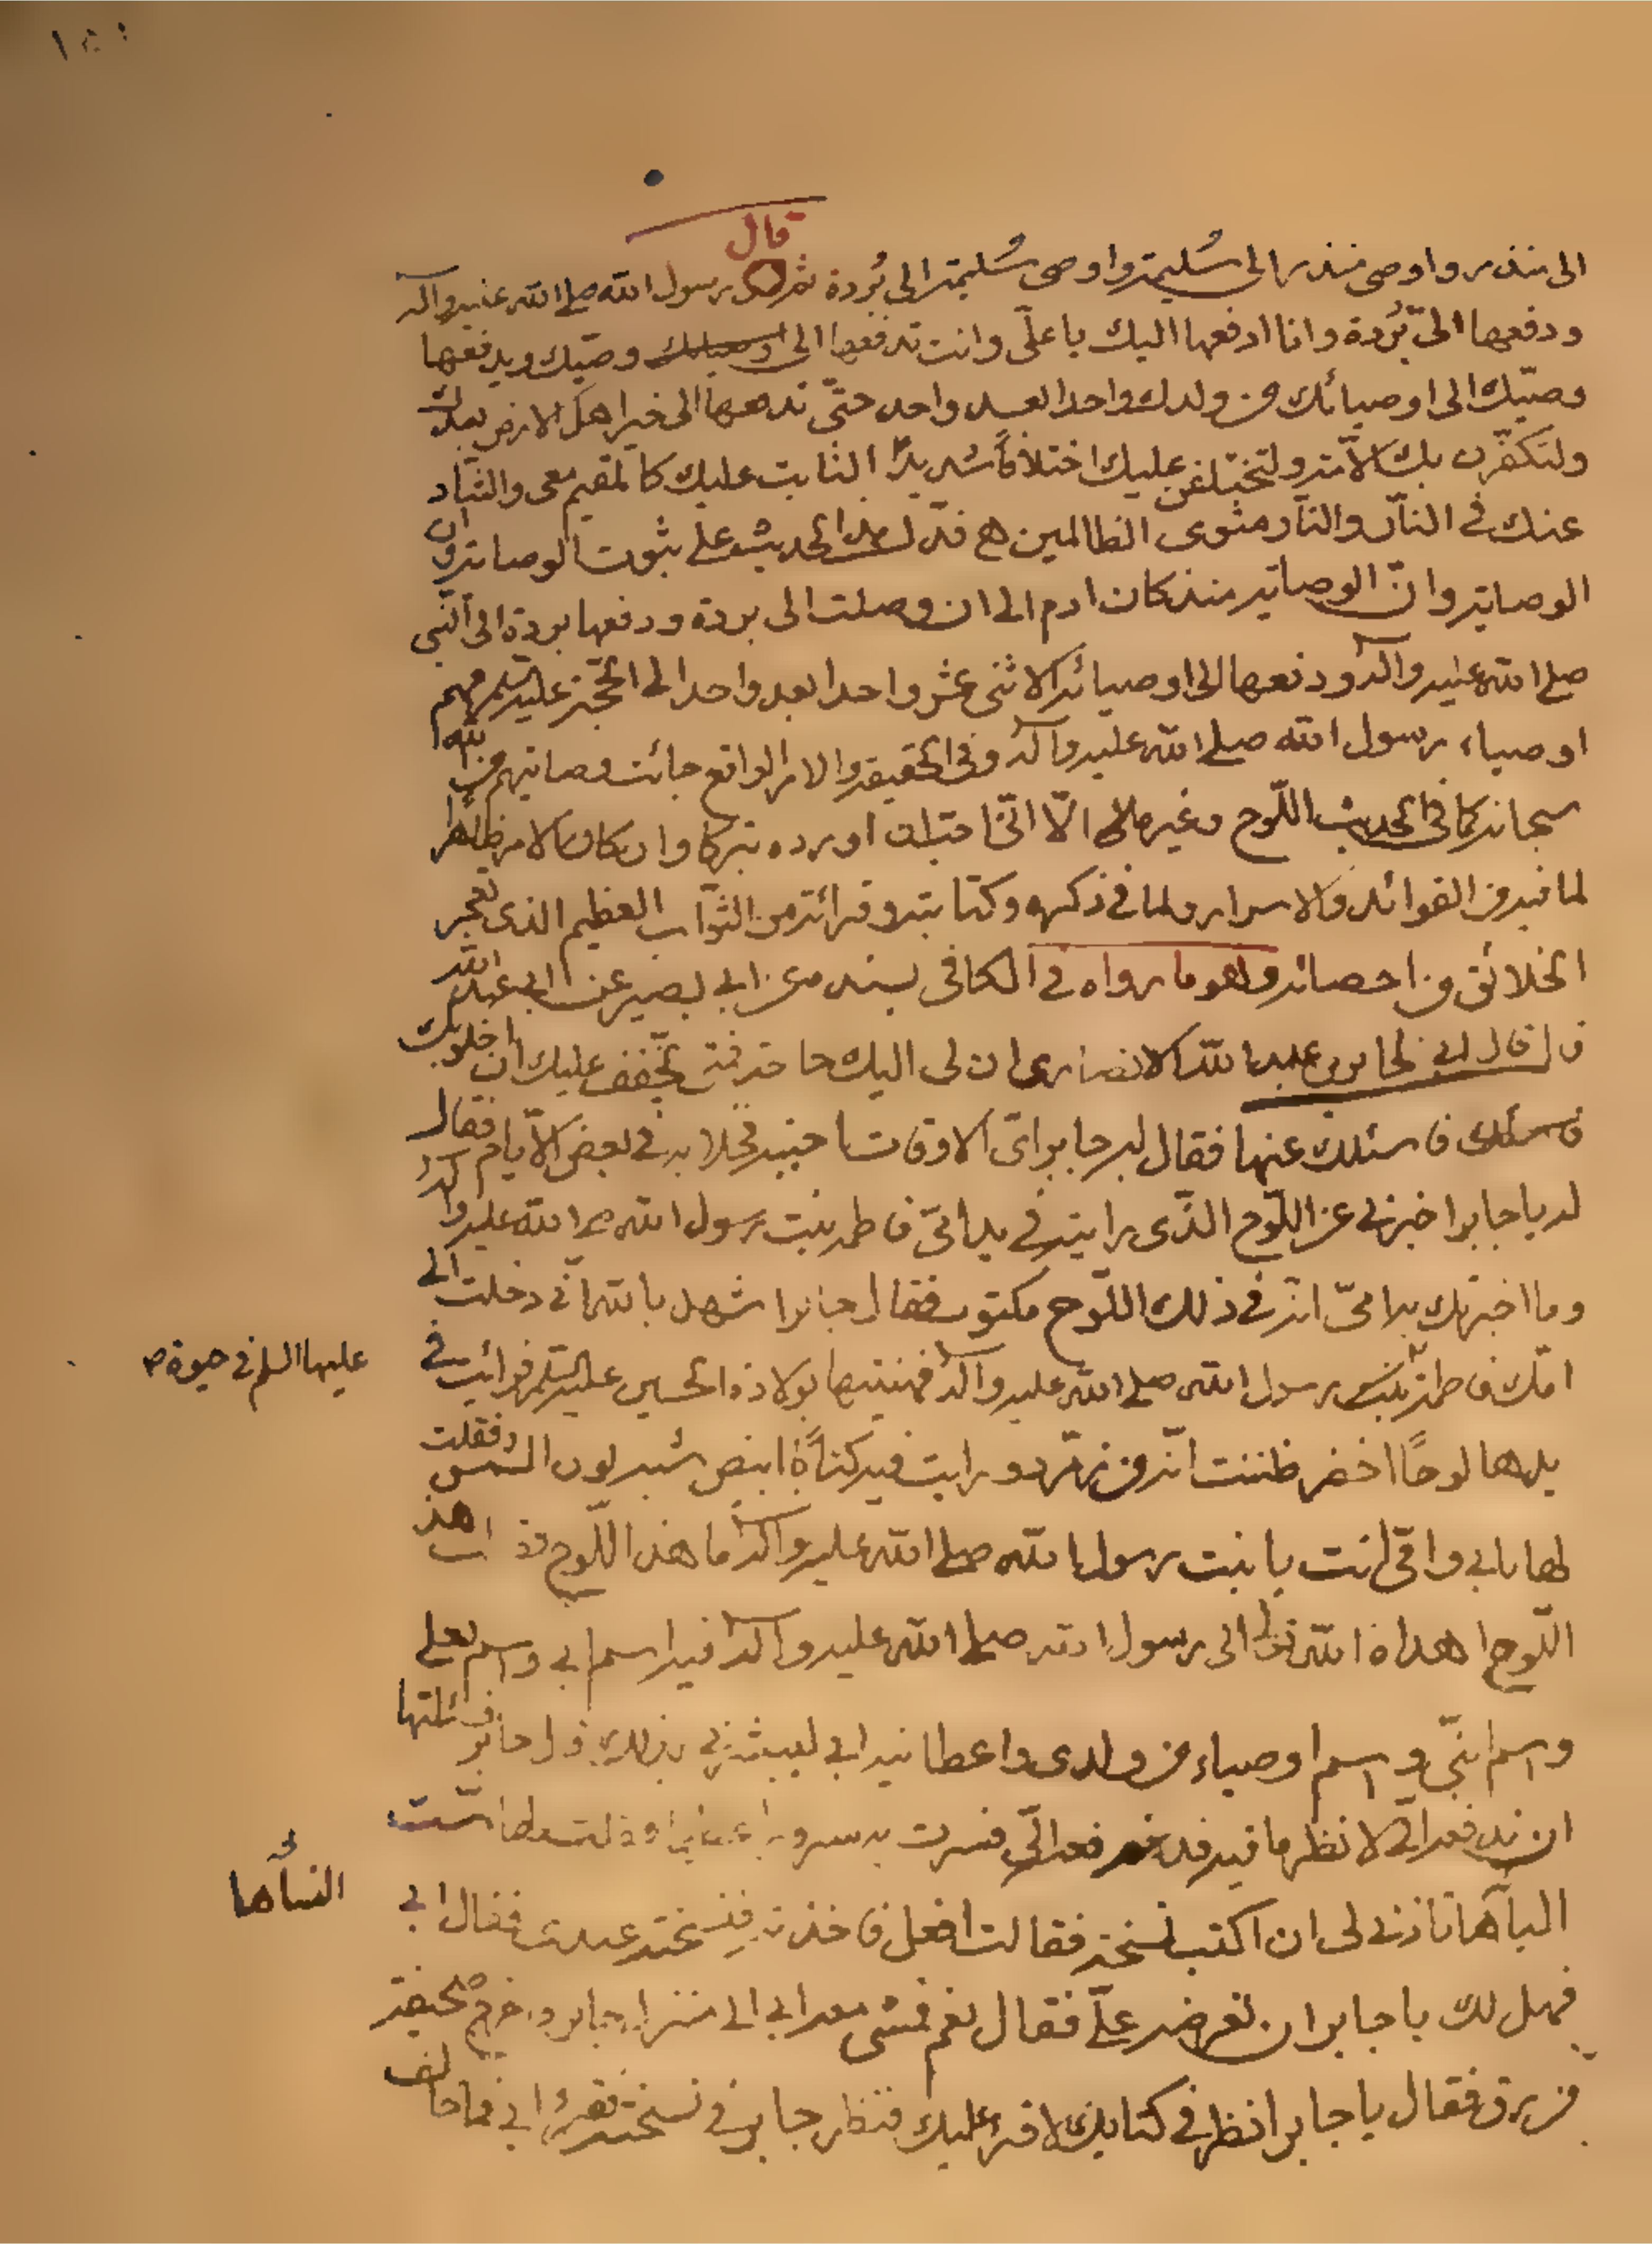 قال
الى منذر واوصى منذر الى سُليمة واوصى سُليمة الى بُردة ثم رسول الله صلى الله عليه وآله
ودفعها الىّ بُردة وانا ادفعها اليك يا علىّ وانت تدفعها الى وصيّك ويدفعها
وصيّك الى اوصيائك من ولدك واحدا بعد واحد حتّى تدفعها الى خير اهل الارض بعدك
ولتكفّرن بك الامّة ولتختلفن عليك اختلافاً شديداً الثابت عليك كالمقيم معى والشّاد
عنك فى النّار والنّار مثوى الظالمين هـ فدّل هذا الحديث على ثبوت الوصاية وان
الوصاية وانّ الوصاية منذ كان ادم الى ان وصلت الى بردة ودفعها بردة الى النّبى
صلى الله عليه وآله ودفعها الى اوصيائه الاثنى عشر واحدا بعد واحد الى الحجّة عليه السّلم فهم
اوصياء رسول الله صلى الله عليه وآله وفى الحقيقة والامر الواقع جائت وصايتهم من الله
سبحانه كما فى الحديث اللّوح وغيره الّا انّنا اورده تبركا وان كان الامر ظاهرا
لما فيه من الفوائد والاسرار ولما فى ذكره وكتابته وقرائته من الثّواب العظيم الذى تعجز
الخلائق من احصائه وهو ما رواه فى الكافى بسنده عن ابى بصير عن ابى عبد الله
قال قال ابى لجابر بن عبد الله الانصارى ان لى اليك حاجة فمتى يخفف عليك ان اخلو بك
فاسئلك عنها فقال له جابر اىّ الاوقات احببته فخلا به فى بعض الايّام فقال
له يا جابر اخبرنى عن اللّوح الذّى رايته فى يد امّى فاطمة بنت رسول الله ص الله عليه وآله
وما اخبرتك به امىّ انه فى ذلك اللّوح مكتوب فقال جابر اشهد بالله انّى دخلت الى
امّك فاطمة بنت رسول الله صلى الله عليه وآله فهنيتها بولادة الحسين عليه السّلم فرائيت فى
عليها السلم فى حيوة ص
يدها لوحًا اخضر ظننت انّه من زمّرد ورايت فيه كتاباً ابيض شبه لون الشمس فقلت
لها بابى وامّى انت يا بنت رسول الله صلى الله عليه وآله ما هذا اللّوح فقالت هذا
اللّوح اهداه الله تعالى الى رسول الله صلى الله عليه وآله فيه اسم ابى واسم بعلى
واسم ابنىّ واسم اوصياء من ولدى واعطانيه ابى ليبشّرنى بذلك قال جابر فسئلتها
ان تدفعه الىّ لانظر ما فيه فدفعه الىّ فسررت به سرورا عظيما وقلت لها يا ست
النسأ ها
ها تاذنى لى ان اكتب نسخة فقالت افعل فاخذته فنسخته عندى فقال ابى
فهل لك يا جابر ان تعرضه علىّ فقال نعم فمشى معه ابى الى منزل جابر واخرج صحيفة
من رق فقال يا جابر انظر فى كتابك لاقرء عليك فنظر جابر فى نسخته فقرئه ابى فما خالف